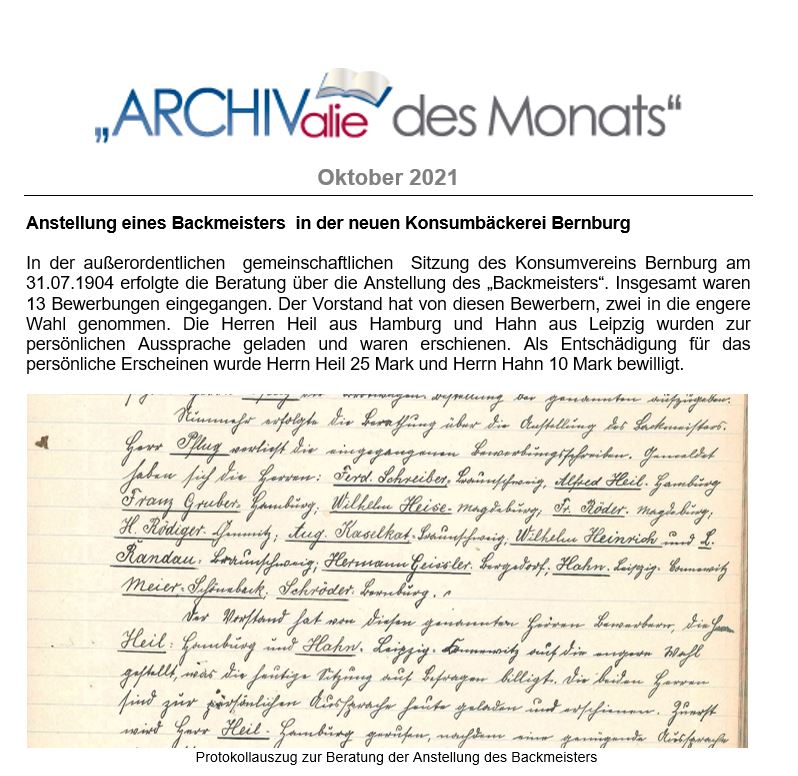 „ARCHIValie des Monats“
Oktober 2021
Anstellung eines Backmeisters in der neuen Konsumbäckerei Bernburg
In der außerordentlichen gemeinschaftlichen Sitzung des Konsumvereins Bernburg am
31.07.1904 erfolgte die Beratung über die Anstellung des „Backmeisters“. Insgesamt waren
13 Bewerbungen eingegangen. Der Vorstand hat von diesen Bewerbern, zwei in die engere
Wahl genommen. Die Herren Heil aus Hamburg und Hahn aus Leipzig wurden zur
persönlichen Aussprache geladen und waren erschienen. Als Entschädigung für das
persönliche Erscheinen wurde Herrn Heil 25 Mark und Herrn Hahn 10 Mark bewilligt.
der genannten aufzugeben.
Nunmehr erfolgte die Berathung über die Anstellung des Backmeisters.
Herr Pflug verliest die eingegangenen Bewerbungsschreiben. Gemeldet
haben sich die Herren: Ferd. Schreiber. Braunschweig, Alfred Heil. Hamburg
Franz Gruber. Hamburg; Wilhelm Heise-Magdeburg; Fr. Röder. Magdeburg;
H. Rödiger. Chemnitz; Aug. Kaselkat-Braunschweig; Wilhelm Heinrich und L.
Randau. Braunschweig; Hermann Geissler. Bergedorf; Hahn. Leipzig. Connewitz
Meier. Schönebeck; Schröder. Bernburg.
Der Vorstand hat von diesen genannten Herren Bewerbern, die Herren
Heil: Hamburg und Hahn. Leipzig. Connewitz auf die engere Wahl
gestellt, was die heutige Sitzung auf Befragen billigt. Die beiden Herren
sind zur persönlichen Aussprache heute geladen und erschienen. Zuerst
wird Herr Heil. Hamburg gerufen, nachdem eine genügende Aussprache
Protokollauszug zur Beratung der Anstellung des Backmeisters